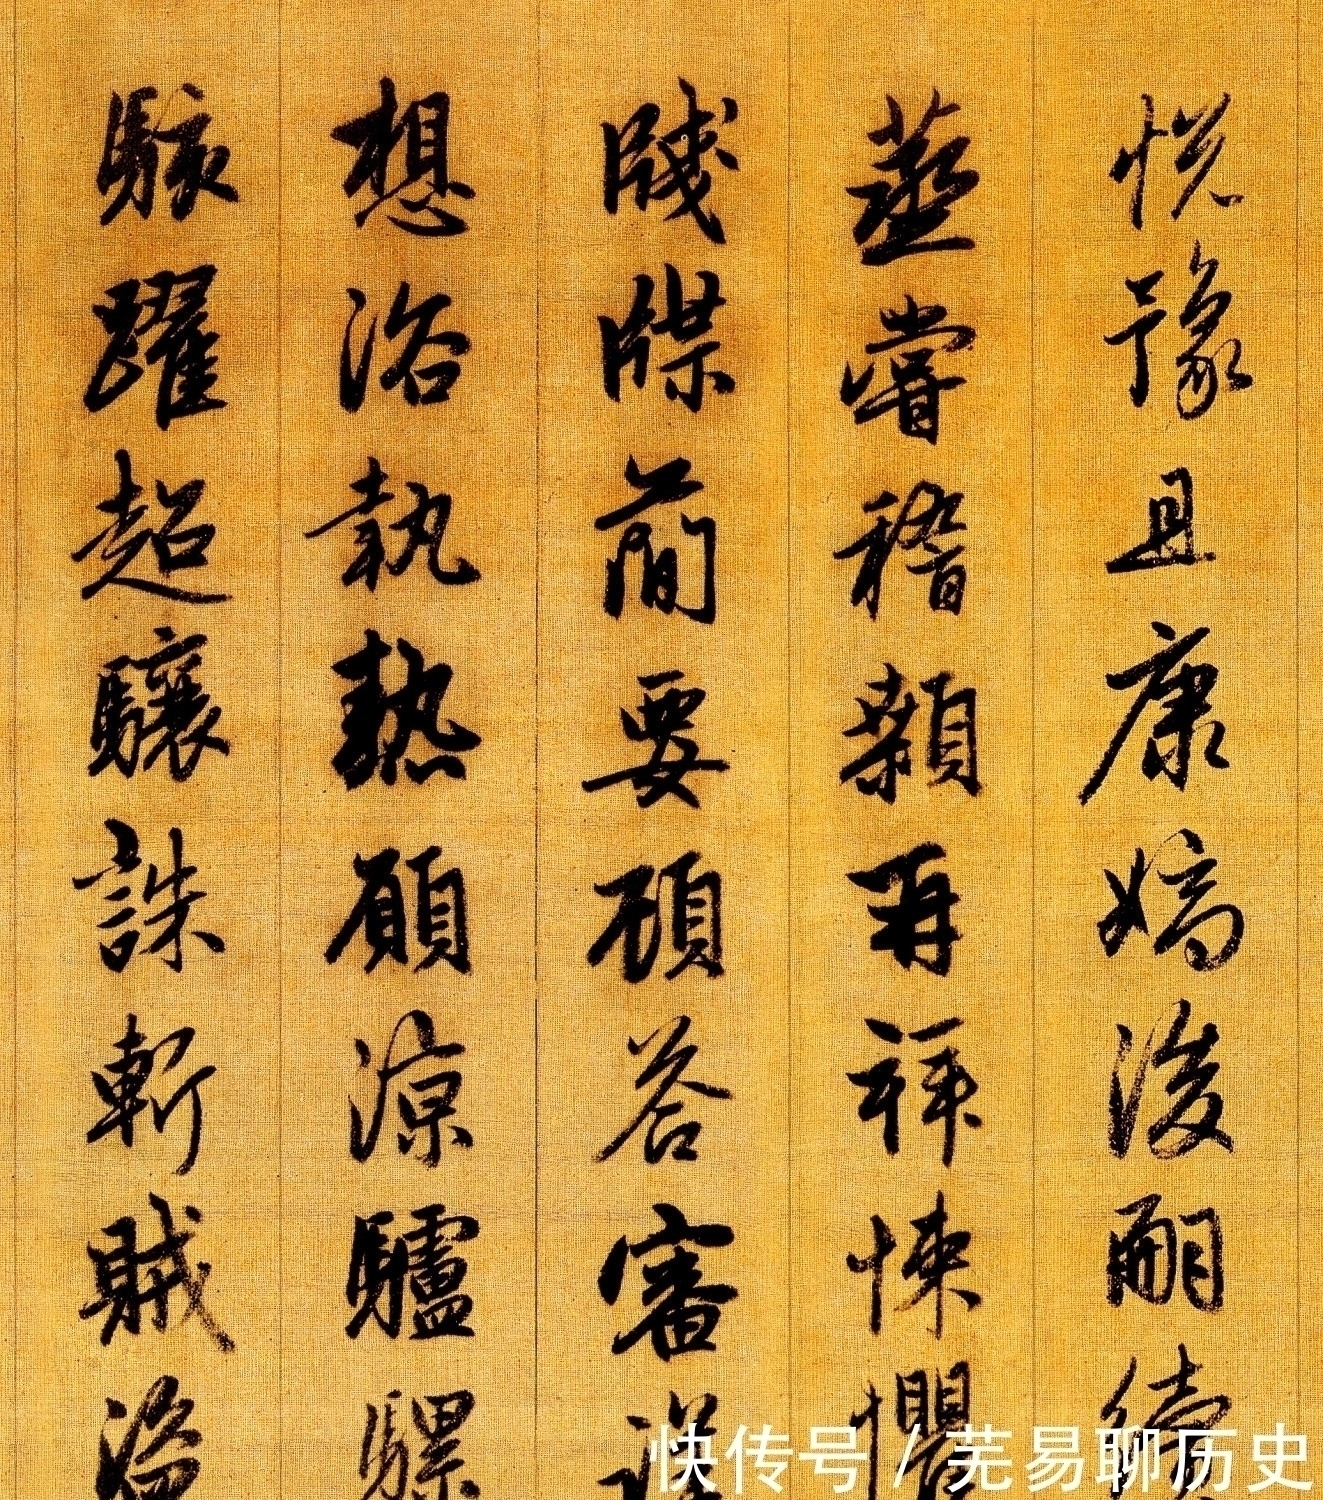 悦豫且康嫡後嗣續
蒸嘗稽顙再拜悚懼
牋牒簡要顧答審詳
想浴執熱願涼驢騾
駭躍超驤誅斬賊盜
快传号 / 芜易聊历史